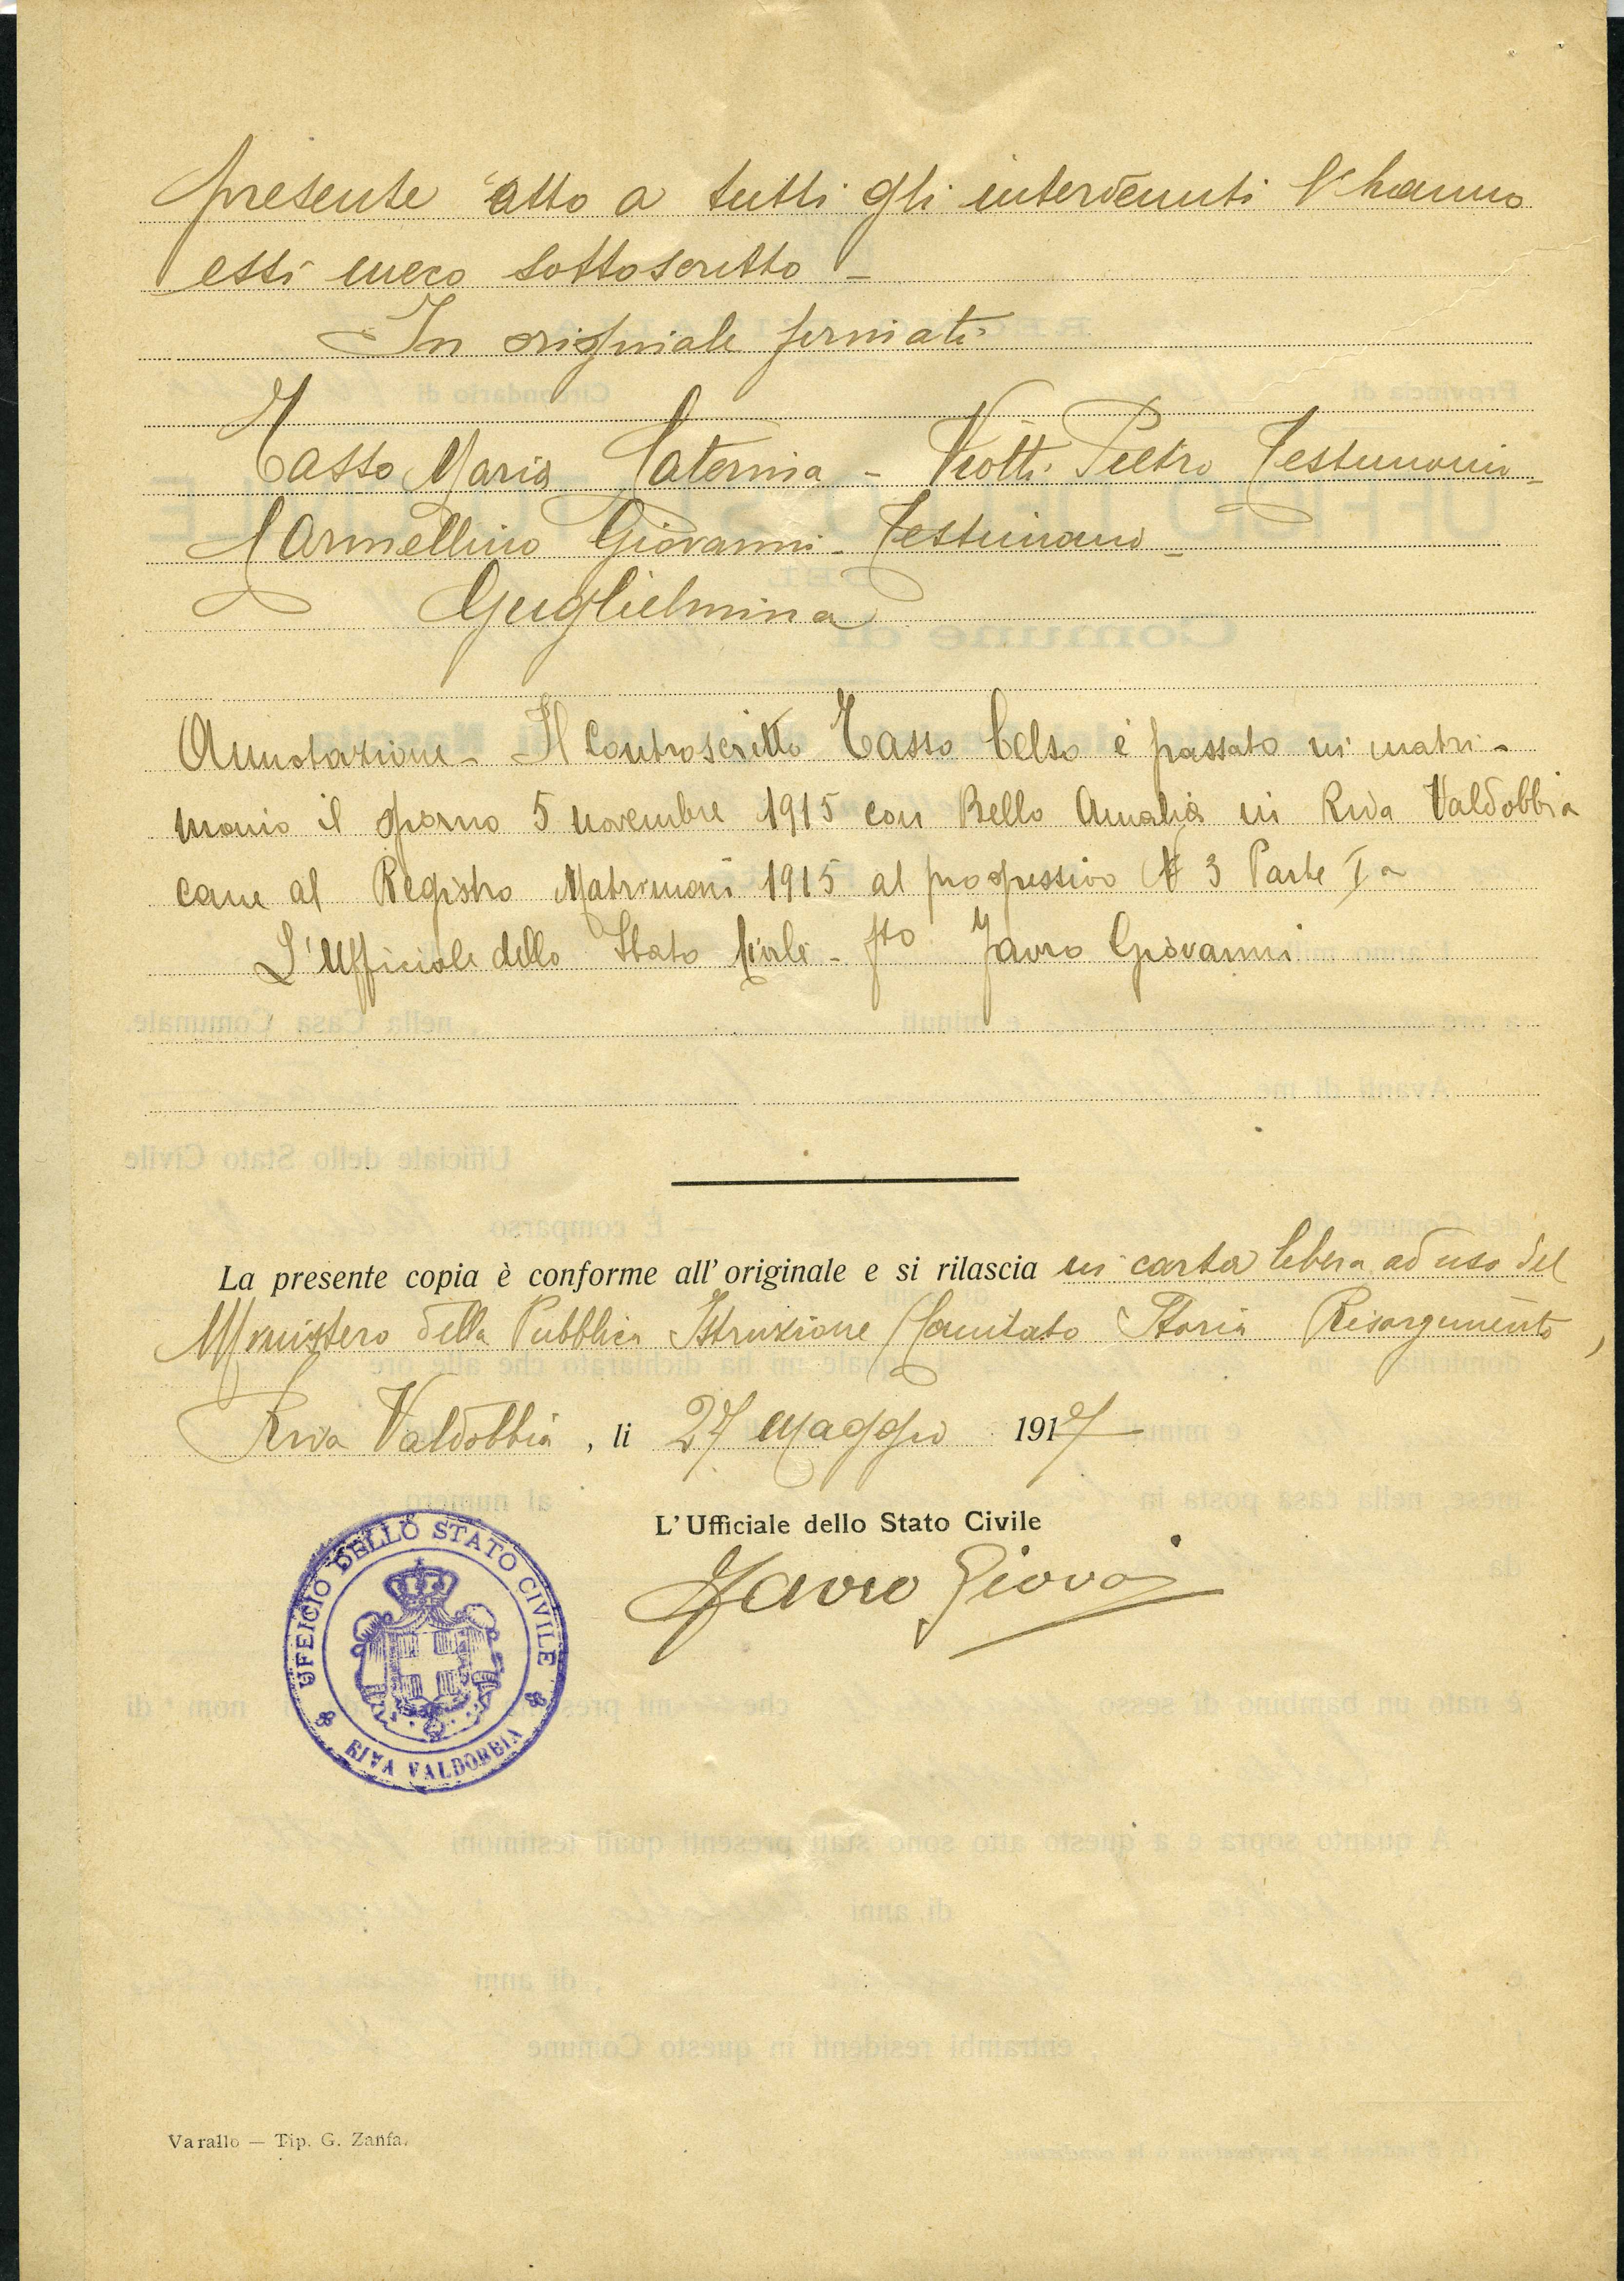 presente atto a tutti gli intervenuti l'hanno
essi meco sottoscritto -
In originale firmati:
Tasso Maria Caterina - Viotti Pietro Testimonio -
Carmellino Giovanni - Testimonio -
Guglielmina
Annotazione - Il controscritto Tasso Celso è passato in matri-
monio il giorno 5 novembre 1915 con Bello Amalia in Riva Valdobbia
come al Registro Matrimoni 1915 al progressivo N 3 Parte Iª
L'Ufficiale dello Stato Civile - fto Javro Giovanni
La presente copia è conforme all'originale e si rilascia in carta libera ad uso del
Ministero della Pubblica Istruzione (Comitato Storia Risorgimento)
Riva Valdobbia, li 27 Maggio 1917
L'Ufficiale dello Stato Civile
Javro Giovⁱ
UFFICIO DELLO STATO CIVILE
RIVA VALDOBBIA
Varallo — Tip. G. Zanfa.